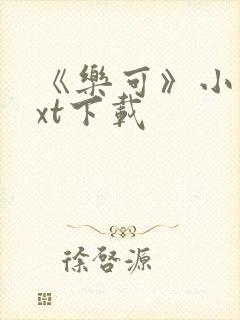 《樂可》小
xt下載
徐啓源